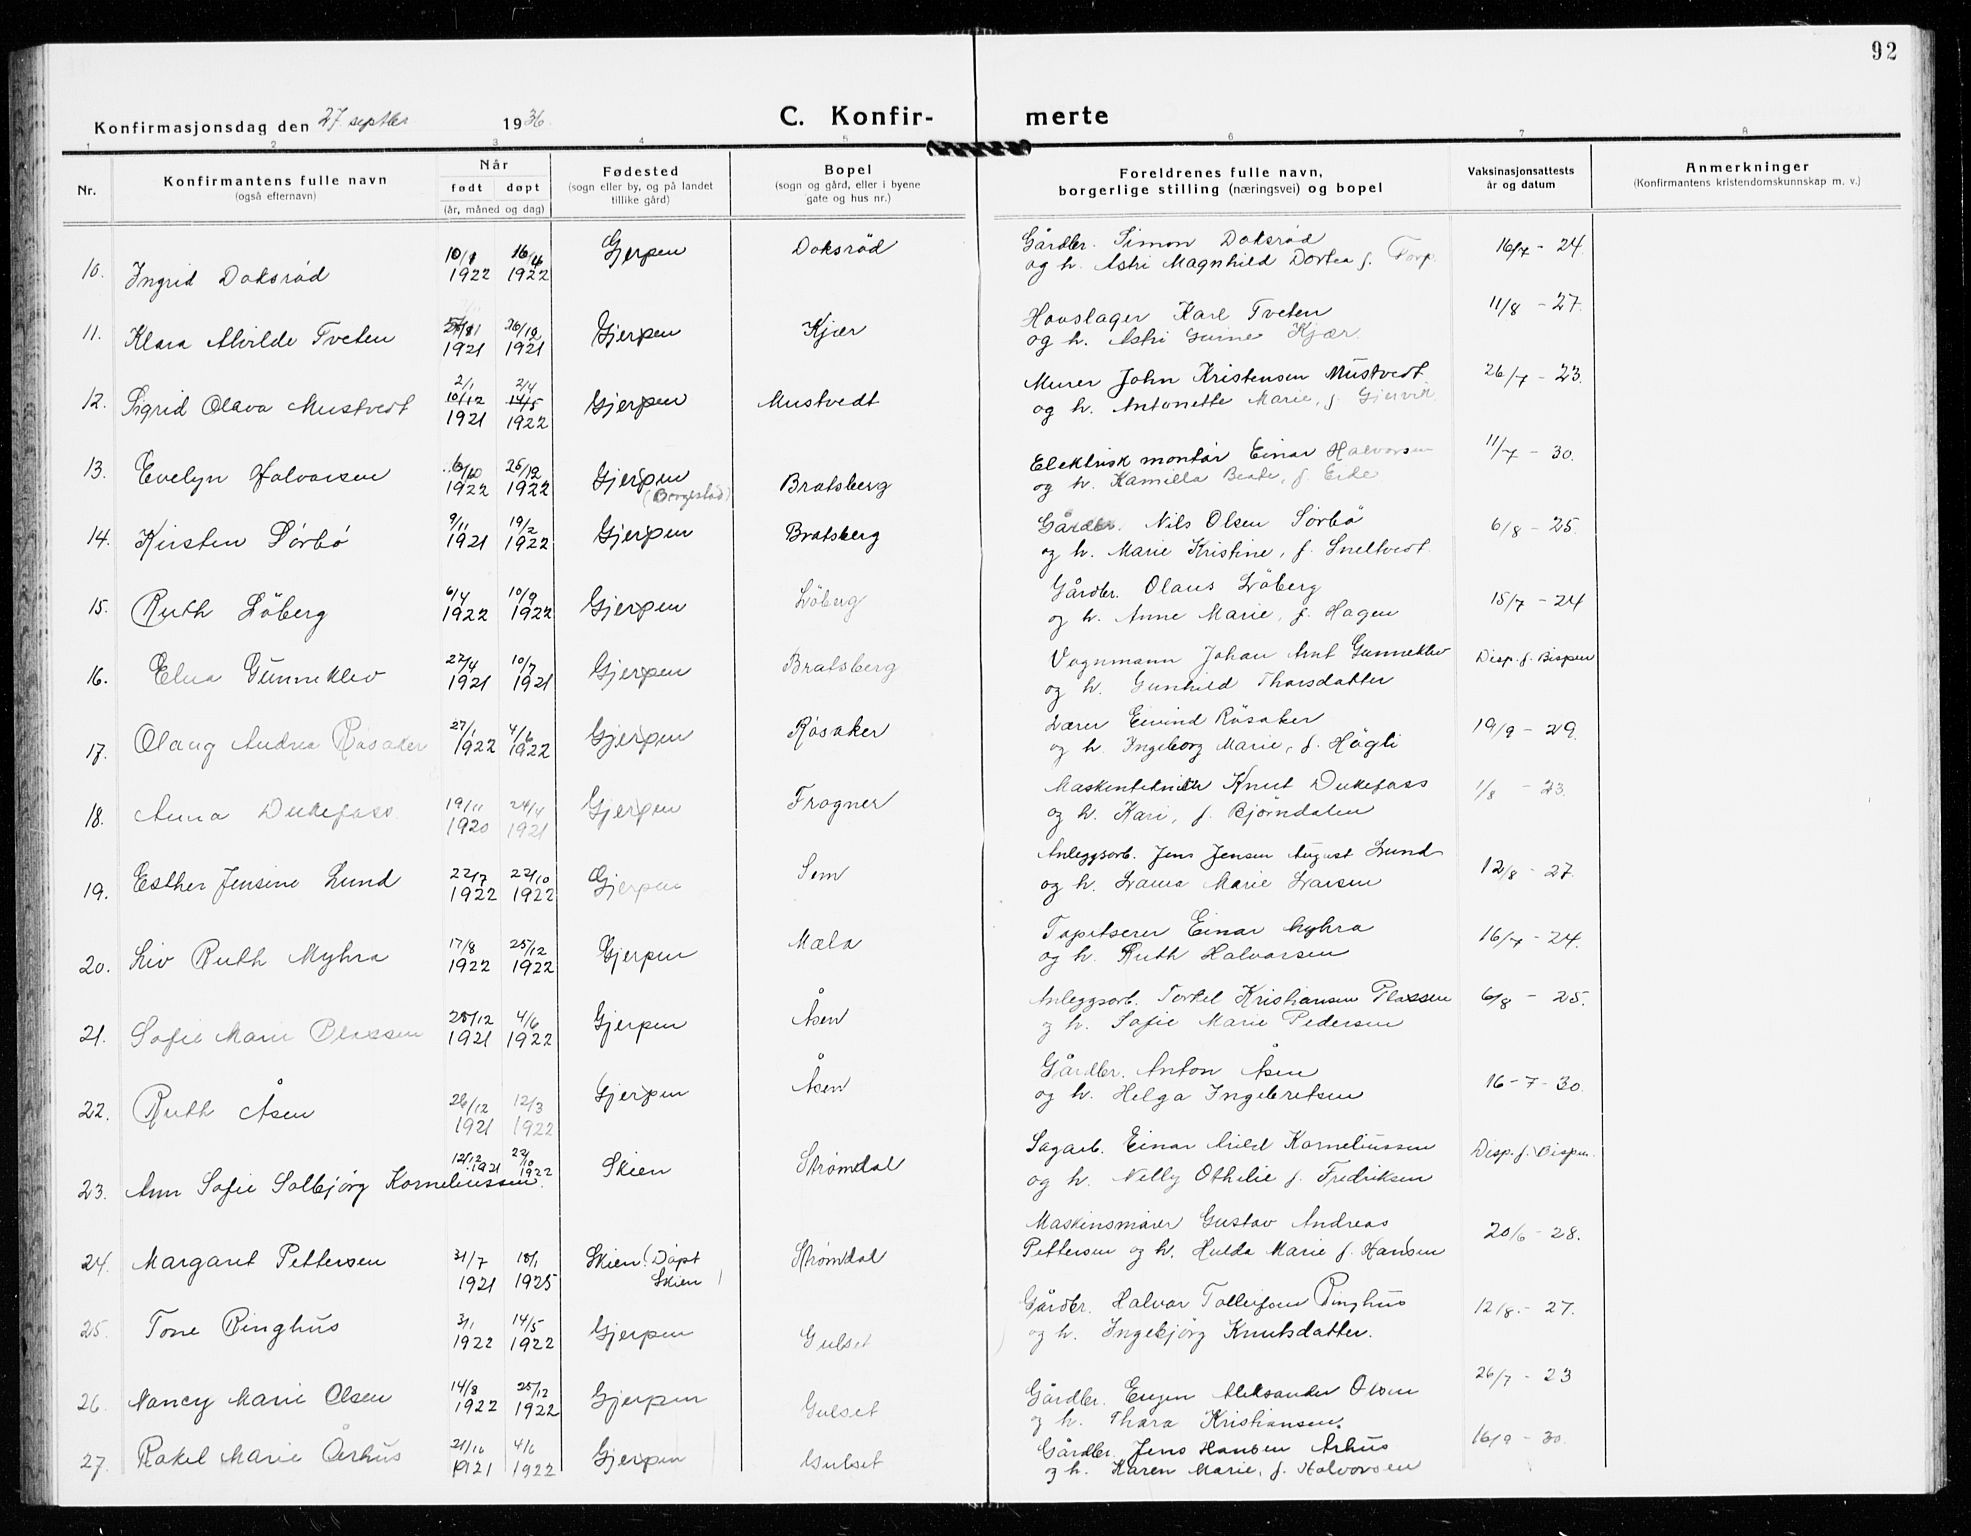 92
Konfirmasjonsdag den 27 septbr 1936
C. Konfir- merte
1 2 3 4 5 6 7 8
Nr.
Konfirmantens fulle navn
(også efternavn)
Når
født døpt
(år, måned og dag)
Fødested
(sogn eller by, og på landet
tillike gård)
Bopel
(sogn og gård, eller i byene
gate og hus nr.)
Foreldrenes fulle navn,
borgerlige stilling (næringsvei) og bopel
Vaksinasjonsattests
år og datum
Anmerkninger
(Konfirmantens kristendomskunnskap m. v.)
10. Ingrid Doksrød 1922 16/4 1922 Gjerpen Doksrød Gårdbr. Simon Doksrød 16/7 - 24
og h. Astri Magnhild Dortea f. Torp.
11. Klara Alvilde Tveten 1921 26/12 1921 Gjerpen Kjær Hovslager Karl Tveten 11/8 - 27.
og h. Astri Gurine Kjær.
12. Sigrid Olava Mustvedt 2/1 10/12 1921 2/4 14/5 1922 Gjerpen Mustvedt Murer John Kristensen Mustvedt 26/7 - 23.
og h. Antonette Marie, f. Gjervik.
13. Evelyn Halvorsen 6/10 1922 25/12 1922 Gjerpen (Borgestad) Bratsberg Elektrisk montør Einar Halvorsen 11/7 - 30.
og h. Kamilla Beate, f. Eike
14. Kirsten Sørbø 9/11 1921 19/2 1922 Gjerpen Bratsberg Gårdbr. Nils Olsen Sørbø 6/8 - 25.
og h. Marie Kristine, f. Sneltvedt.
15. Ruth Löberg 6/4 1922 10/9 1922 Gjerpen Löberg Gårdbr. Olaus Löberg 15/7 - 24
og h. Anne Marie, f. Hagen
16. Elna Gunneklev 22/4 1921 10/7 1921 Gjerpen Bratsberg Vognmann Johan Amt Gunneklev Disp. f. Bispen
og h. Gunhild Thorsdatter
17. Olaug Andrea Røsaker 27/1 1922 4/6 1922 Gjerpen Røsaker Lærer Eivind Røsaker 19/9 - 29.
og h. Ingeborg Marie, f. Högli
18. Anna Dukefoss 19/11 1920 24/4 1921 Gjerpen Frogner Knut Dukefoss 1/8 - 23.
og h. Kari, f. Bjørndalen
19. Esther Jensine Lund 22/7 1922 22/10 1922 Gjerpen Sem Anleggsarb. Jens Jensen August Lund 12/8 - 27.
og h. Laura Marie Larsen
20. Liv Ruth Myhra 17/8 1922 25/12 1922 Gjerpen Mæla Tapetserer Einar Myhra 16/7 - 24.
og h. Ruth Halvorsen
21. Sofie Marie Plassen 25/12 1921 4/6 1922 Gjerpen Åsen Anleggsarb. Torkel Kristiansen Plassen 6/8 - 25.
og h. Sofie Marie Pedersen
22. Ruth Åsen 26/12 1921 12/3 1922 Gjerpen Åsen Gårdbr. Anton Åsen 16-7-30.
og h. Helga Ingebretsen
23. Ann Sofie Solbjørg Korneliussen 12/12 1921 22/10 1922 Skien Strømdal Sagarb. Einar Arild Korneliussen Disp. f. Bispen.
og h. Nelly Othilie f. Fredriksen
24. Margaret Pettersen 31/7 1921 18/1 1925 Skien (Døpt Skien) Strømdal Maskinsmører Gustav Andreas 20/6 - 28.
Pettersen og h. Hulda Marie f. Hansen
25. Tone Ringhus 3/1 1922 14/5 1922 Gjerpen Gulset Gårdbr. Halvor Tollefsen Ringhus 12/8. - 27.
og h. Ingebjørg Knutsdatter.
26. Nancy Marie Olsen 14/8 1922 25/12 1922 Gjerpen Gulset Gårdbr. Eugen Aleksander Olsen 26/7 - 23
og h. Thora Kristiansen.
27. Rakel Marie Århus 21/10 1921 4/6 1922 Gjerpen Gulset Gårdbr. Jens Hansen Århus 16/9 - 30.
og h. Karen Marie, f. Halvorsen